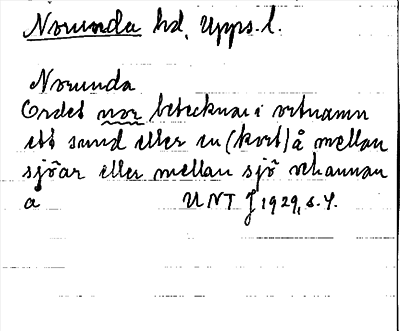 Norunda hd, Upps. l.
Norunda
Ordet nor betecknar i ortnamn
ett sund eller en (kort) å mellan
sjöar eller mellan sjö och annan
å UNT J 1929, s. 4.